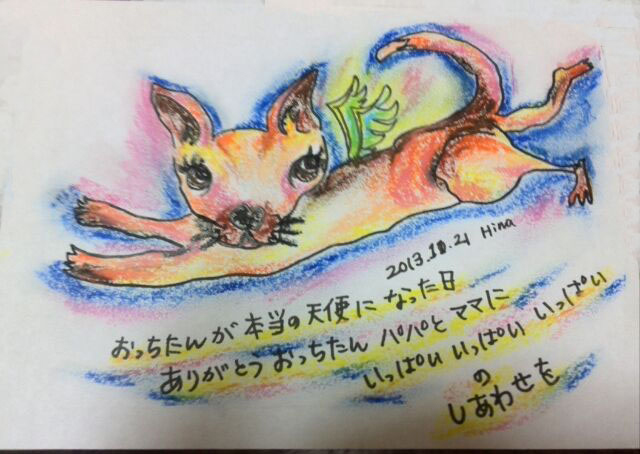 2013.10.21 Hina
おっちたんが本当の天使になった日
ありがとう おっちたん パパとママに
いっぱい いっぱい いっぱい
の
しあわせを